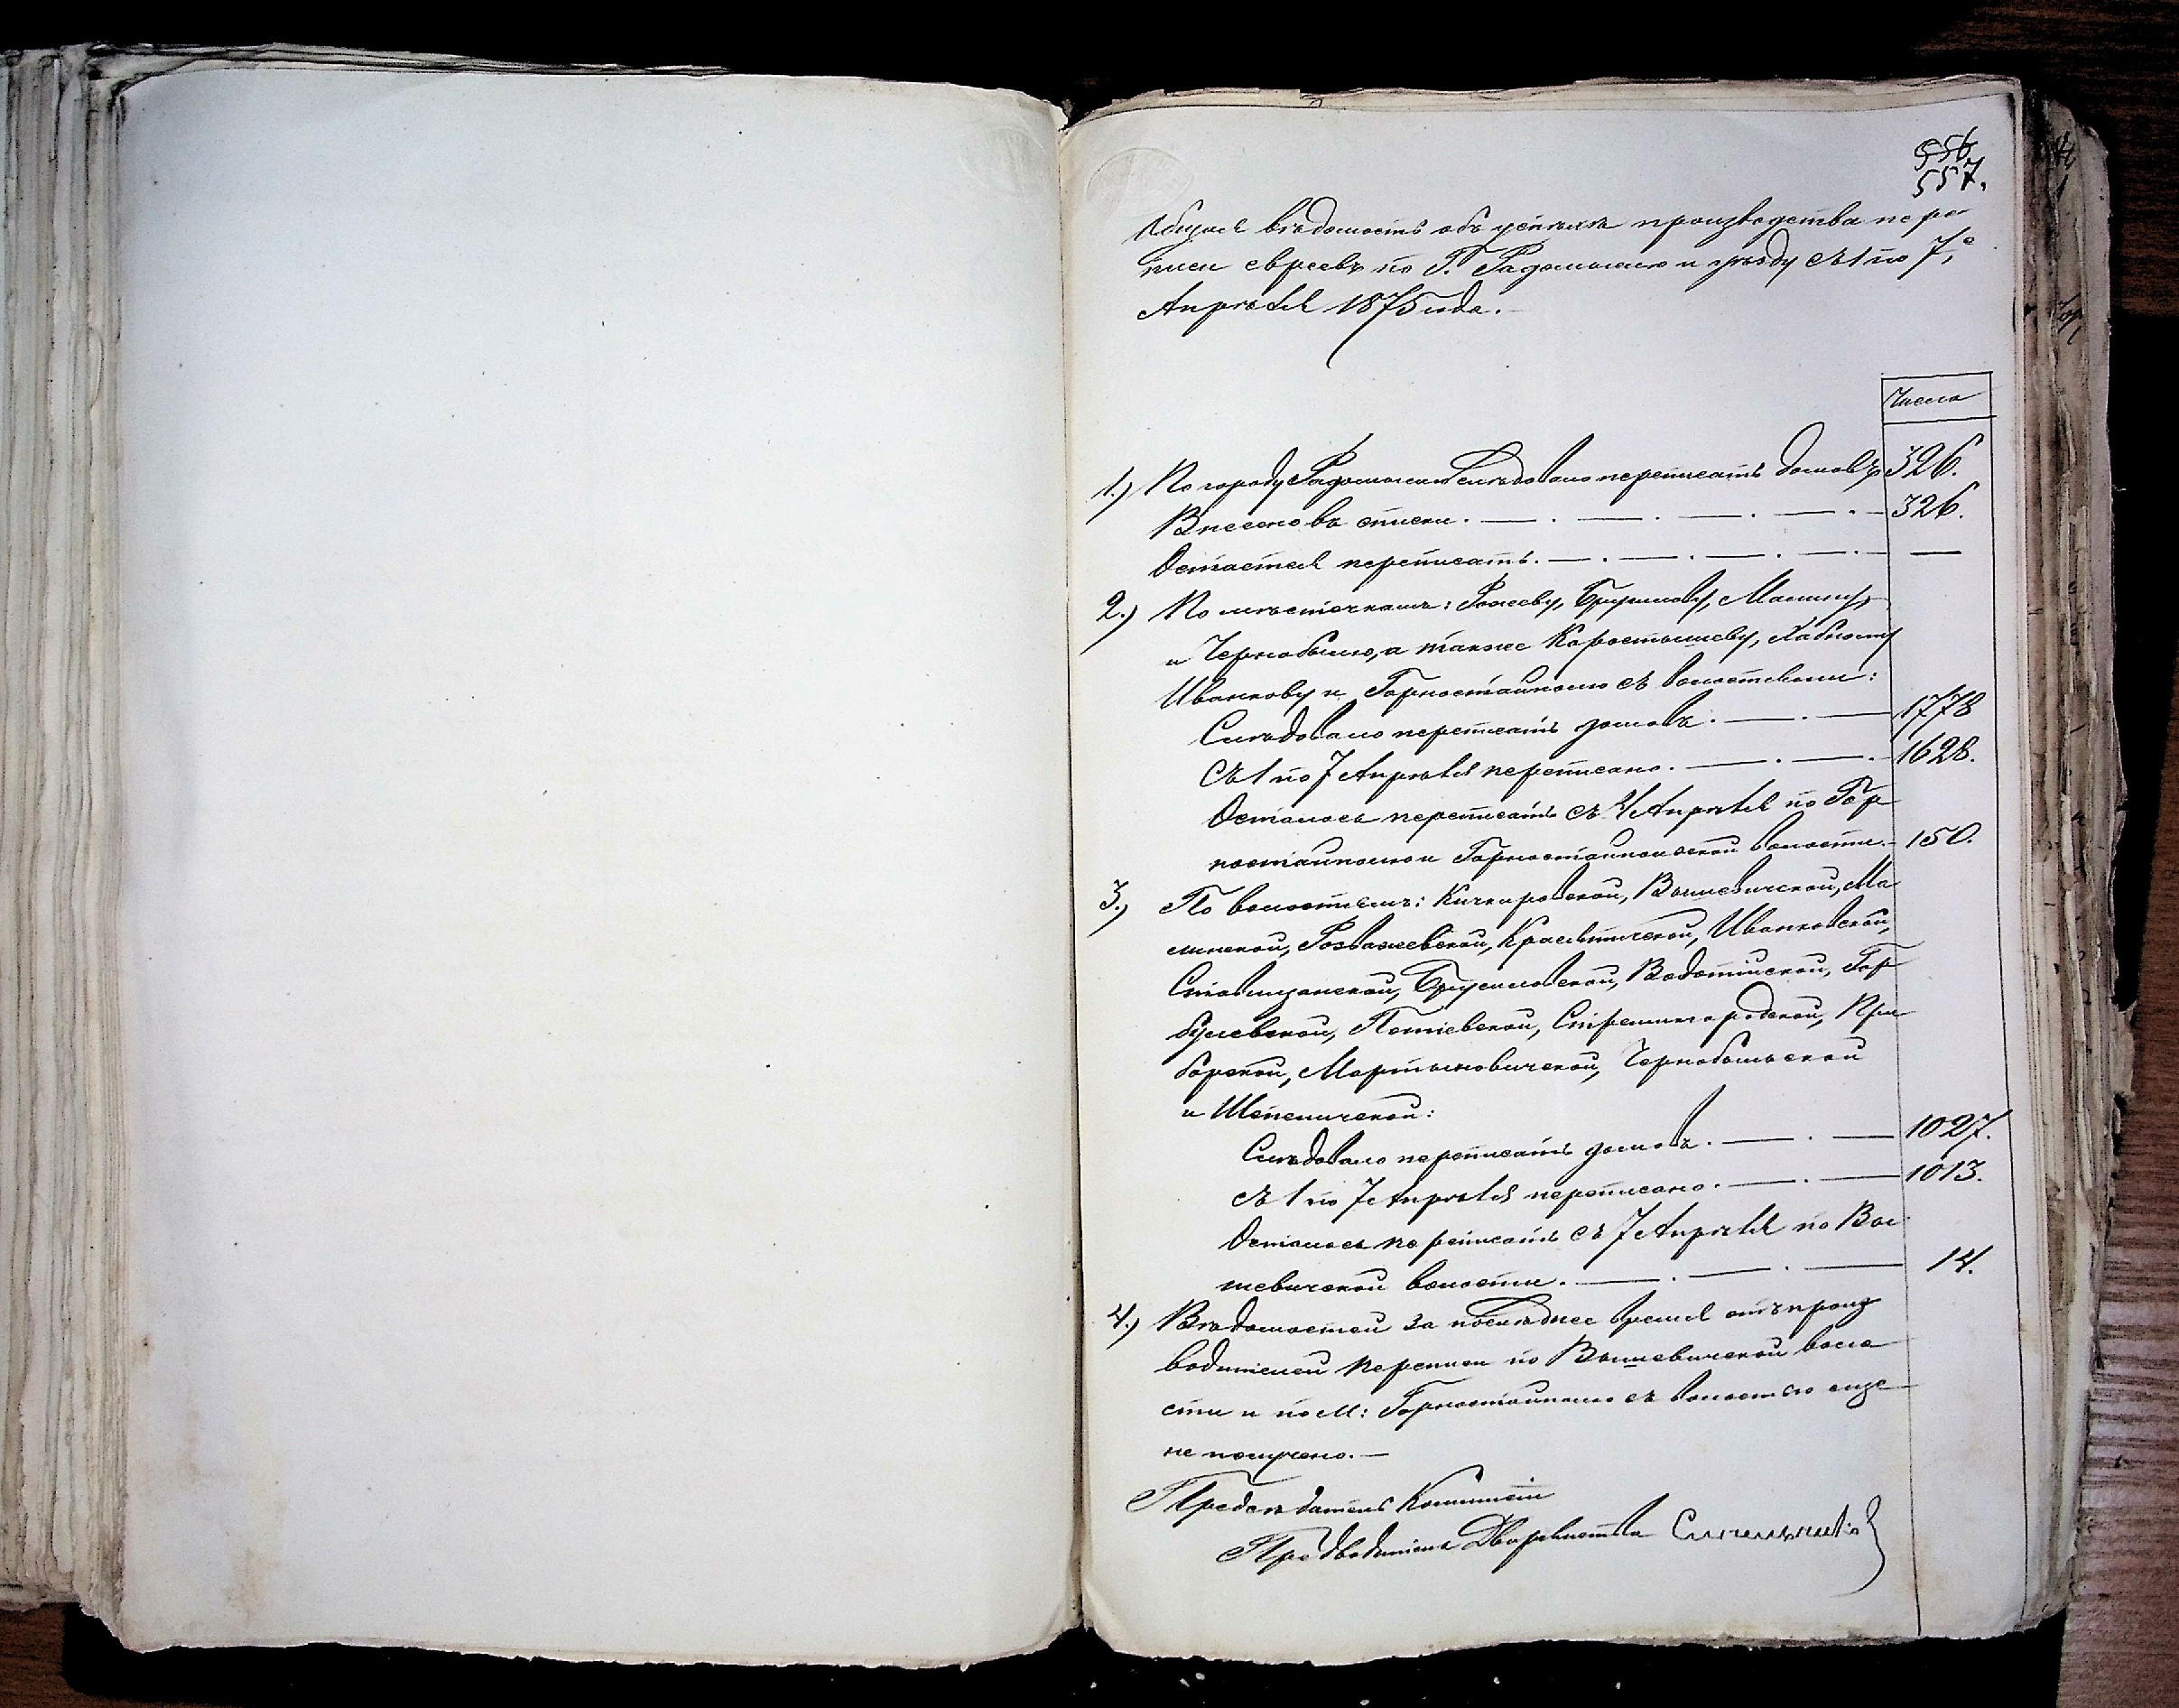 556
557.
Общая вѣдомость объ успѣхѣ производства пере
писи евреевъ по Г. Радомыслю и уѣзду съ 1 по 7е
Апрѣля 1875 года.
Число
1.) По городу Радомыслю Слѣдовало переписать домовъ 326.
Внесено въ списки. — . — . — . — . — 326.
Остается переписать. — . — . — . — . — —
2.) По мѣстечкамъ: Рожеву, Брусилову, Малину,
и Чернобылю, а также Коростышеву, Хабному
Иванкову и Горностайполю съ волостями:
Слѣдовало переписать домовъ. — . — 1778
Съ 1 по 7 Апрѣля переписано. — . — . — 1628.
Осталось переписать съ 7 Апрѣля по Гор
ностайполю и Горностайпольской волости. — 150.
3.) По волостямъ: Кичкировской, Вышевичской, Ма
линской, Розважевской, Краснятичской, Иванковской,
Ставищанской, Брусиловской, Водотійской, Гор
булевской, Потіевской, Стремигородской, При
борской, Мартыновичской, Чернобыльской
и Шепеличской:
Слѣдовало переписать домовъ. — . — 1027.
съ 1 по 7 Апрѣля переписано. — . — 1013.
Осталось переписать съ 7 Апрѣля по Вы
шевичской волости. — . — . — 14.
4.) Вѣдомостей за послѣднее время отъ произ
водителей переписи по Вышевичской воло
сти и по М: Горностайполю съ волостью еще
не получено. —
Предсѣдатель Коммисіи
Предводитель Дворянства